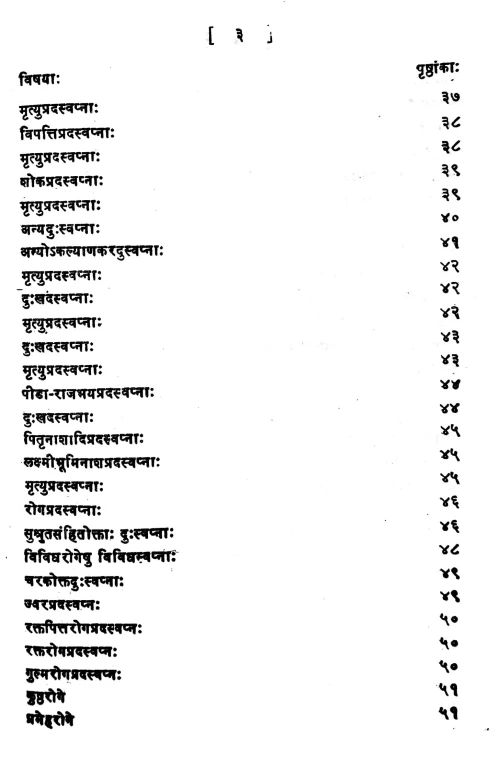 [ ३ ]
विषयाः पृष्ठांकाः
मृत्युप्रदस्वप्नाः ३७
विपत्तिप्रदस्वप्नाः ३८
मृत्युप्रदस्वप्नाः ३८
शोकप्रदस्वप्नाः ३९
मृत्युप्रदस्वप्नाः ३९
अन्यदुःस्वप्नाः ४०
अन्योऽकल्याणकरदुस्वप्नाः ४१
मृत्युप्रदस्वप्नाः ४२
दुःखदस्वप्नाः ४२
मृत्युप्रदस्वप्नाः ४२
दुःखदस्वप्नाः ४३
मृत्युप्रदस्वप्नाः ४३
पीडा-राजभयप्रदस्वप्नाः ४४
दुःखदस्वप्नाः ४४
पितृनाशादिप्रदस्वप्नाः ४५
लक्ष्मीभूमिनाशप्रदस्वप्नाः ४५
मृत्युप्रदस्वप्नाः ४५
रोगप्रदस्वप्नाः ४६
सुश्रुतसंहितोक्ताः दुःस्वप्नाः ४६
विविधरोगेषु विविधस्वप्नाः ४८
चरकोक्तदुःस्वप्नाः ४९
ज्वरप्रदस्वप्नः ४९
रक्तपित्तरोगप्रदस्वप्नः ५०
रक्तरोगप्रदस्वप्नः ५०
गुल्मरोगप्रदस्वप्नः ५०
कुष्ठरोगे ५१
प्रमेहरोगे ५१